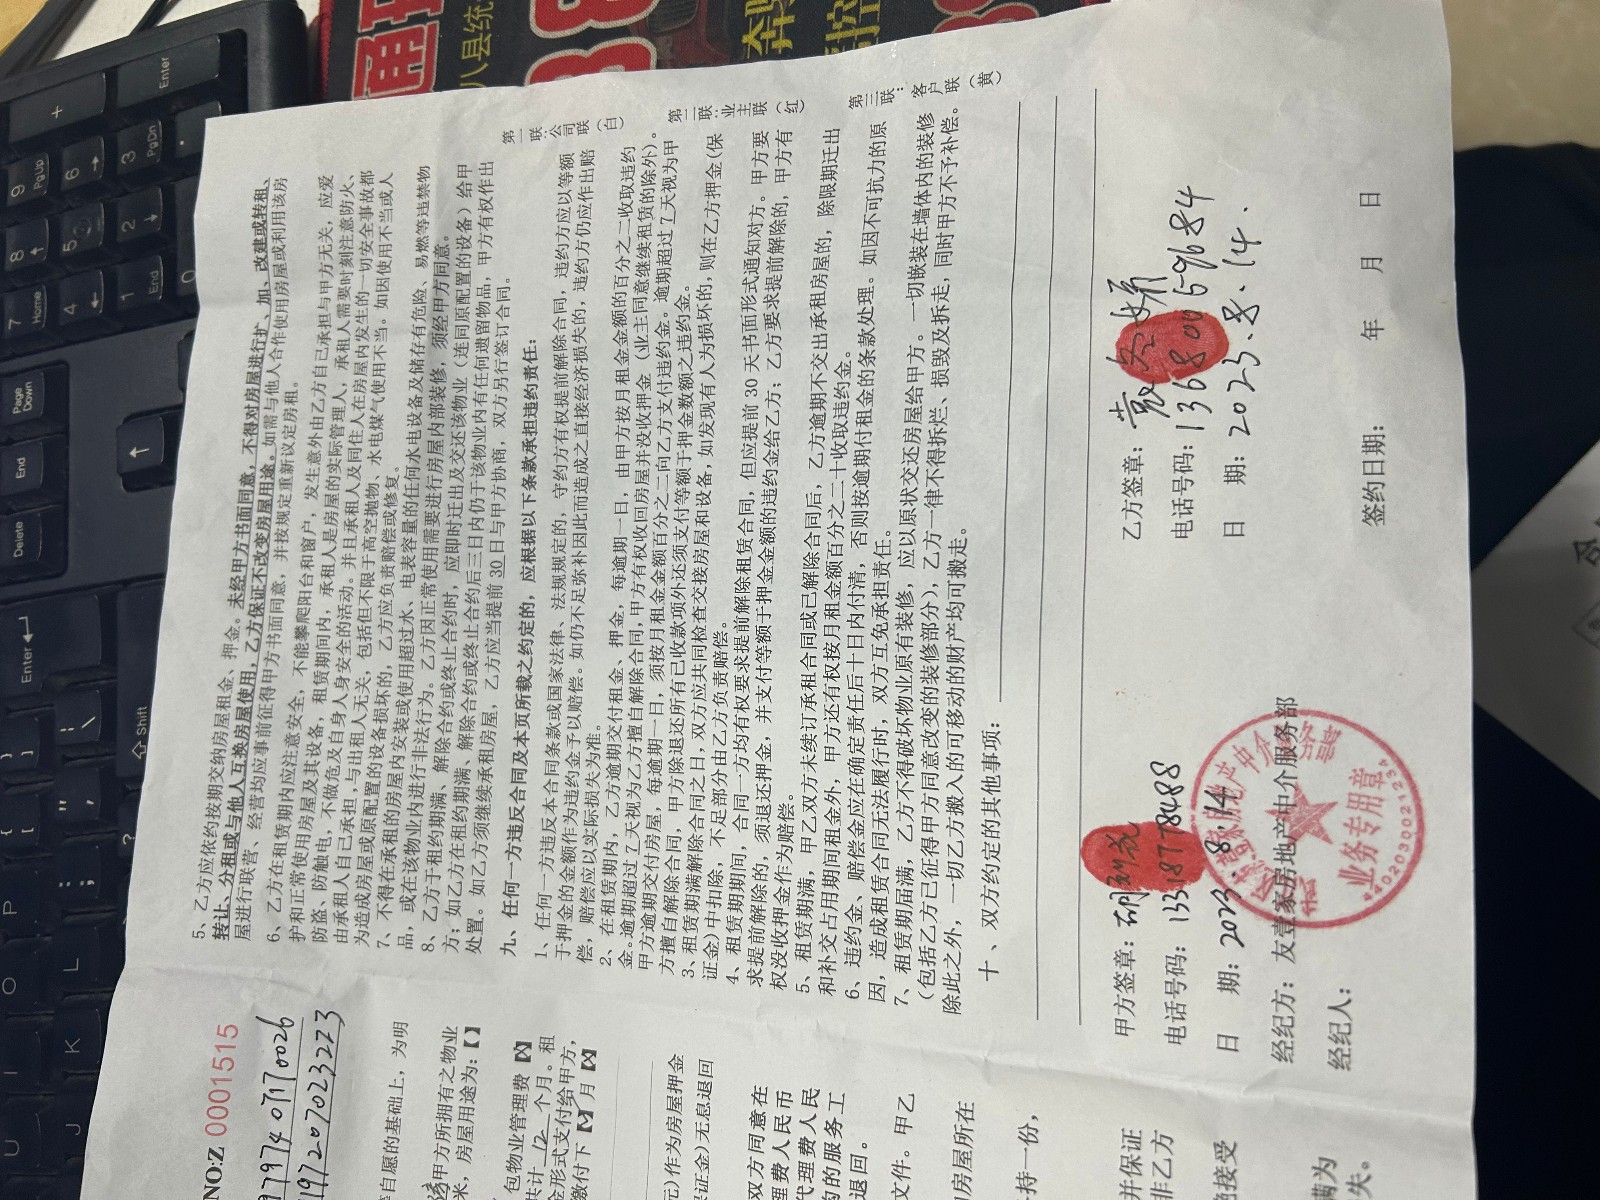 5、乙方应依约按期交纳房屋租金、押金。未经甲方书面同意，不得对房屋进行扩、加、改建或转租、
转让、分租或与他人互换房屋使用，乙方保证不改变房屋用途。如需与他人合作使用房屋或利用该房
屋进行联营、经营均应事前征得甲方书面同意，并按规定重新议定房租。
6、乙方在租赁期内应注意安全，不能攀爬阳台和窗户，发生意外由乙方自己承担与甲方无关，应爱
护和正常使用房屋及其设备，租赁期间内，承租人是房屋的实际管理人，承租人需要时刻注意防火、
防盗、防触电，不做危及自身人身安全的活动。并且承租人及同住人在房屋内发生的一切安全事故都
由承租人自己承担，与出租人无关，包括但不限于高空抛物、水电煤气使用不当。如因使用不当或人
为造成房屋或原配置的设备损坏的，乙方应负责赔偿或修复。
7、不得在承租的房屋内安装或使用超过水、电表容量的任何水电设备及储存有危险、易燃等违禁物
品，或在该物业内进行非法行为。乙方因正常使用需要进行房屋内部装修，须经甲方同意。
8、乙方于租约期满、解除合约或终止合约时，应即时迁出及交还该物业（连同原配置的设备）给甲
方；如乙方在租约期满、解除合约或终止合约后三日内仍于该物业内有任何遗留物品，甲方有权作出
处置。如乙方须继续承租房屋，乙方应当提前 30 日与甲方协商，双方另行签订合同。
九、任何一方违反合同及本页所载之约定的，应根据以下条款承担违约责任：
1、任何一方违反本合同条款或国家法律、法规规定的，守约方有权提前解除合同，违约方应以等额
于押金的金额作为违约金予以赔偿。如仍不足弥补因此而造成之直接经济损失的，违约方仍应作出赔
偿，赔偿应以实际损失为准。
2、在租赁期内，乙方逾期交付租金、押金，每逾期一日，由甲方按月租金金额的百分之二收取违约
金。逾期超过 7 天视为乙方擅自解除合同，甲方有权收回房屋并没收押金（业主同意继续租赁的除外）。
甲方逾期交付房屋，每逾期一日，须按月租金金额百分之二向乙方支付违约金。逾期超过 7 天视为甲
方擅自解除合同，甲方除退还所有已收款项外还须支付等额于押金数额之违约金。
3、租赁期满解除合同之日，双方应共同检查交接房屋和设备，如发现有人为损坏的，则在乙方押金(保
证金)中扣除，不足部分由乙方负责赔偿。
4、租赁期间，合同一方均有权要求提前解除租赁合同，但应提前 30 天书面形式通知对方。甲方要
求提前解除的，须退还押金，并支付等额于押金金额的违约金给乙方；乙方要求提前解除的，甲方有
权没收押金作为赔偿。
5、租赁期满，甲乙双方未续订承租合同或已解除合同后，乙方逾期不交出承租房屋的，除限期迁出
和补交占用期间租金外，甲方还有权按月租金额百分之二十收取违约金。
6、违约金、赔偿金应在确定责任后十日内付清，否则按逾期付租金的条款处理。如因不可抗力的原
因，造成租赁合同无法履行时，双方互免承担责任。
7、租赁期届满，乙方不得破坏物业原有装修，应以原状交还房屋给甲方。一切嵌装在墙体内的装修
（包括乙方已征得甲方同意改变的装修部分），乙方一律不得拆烂、损毁及拆走，同时甲方不予补偿。
除此之外，一切乙方搬入的可移动的财产均可搬走。
十、双方约定的其他事项：
第一联：公司联（白）
第二联：业主联（红）
第三联：客户联（黄）
甲方签章：
电话号码：13318778488
日 期：2023.8.14
经纪方：友壹家房地产中介服务部
经纪人：
业务专用章
4402030021234
乙方签章：
电话号码：13680059684
日 期：2023.8.14.
签约日期： 年 月 日
NO:Z 0001515
197207023223
等自愿的基础上，为明
甲方所拥有之物业
米，房屋用途为：【】
包物业管理费
共计 12 个月。租
金形式支付给甲方，
缴付下【✓】月
元)作为房屋押金
保证金)无息退回
双方同意在
理费人民币
代理费人民
的服务工
退回。
文件。甲乙
房屋所在
持一份，
并保证
非乙方
绝接受
满为
失。
Enter
+
9
PgUp
6
3
PgDn
8
5
2
7
Home
4
1
End
0
Page
Down
End
Delete
Enter
Shift
U
I
O
P
J
K
L
通
八县统
88